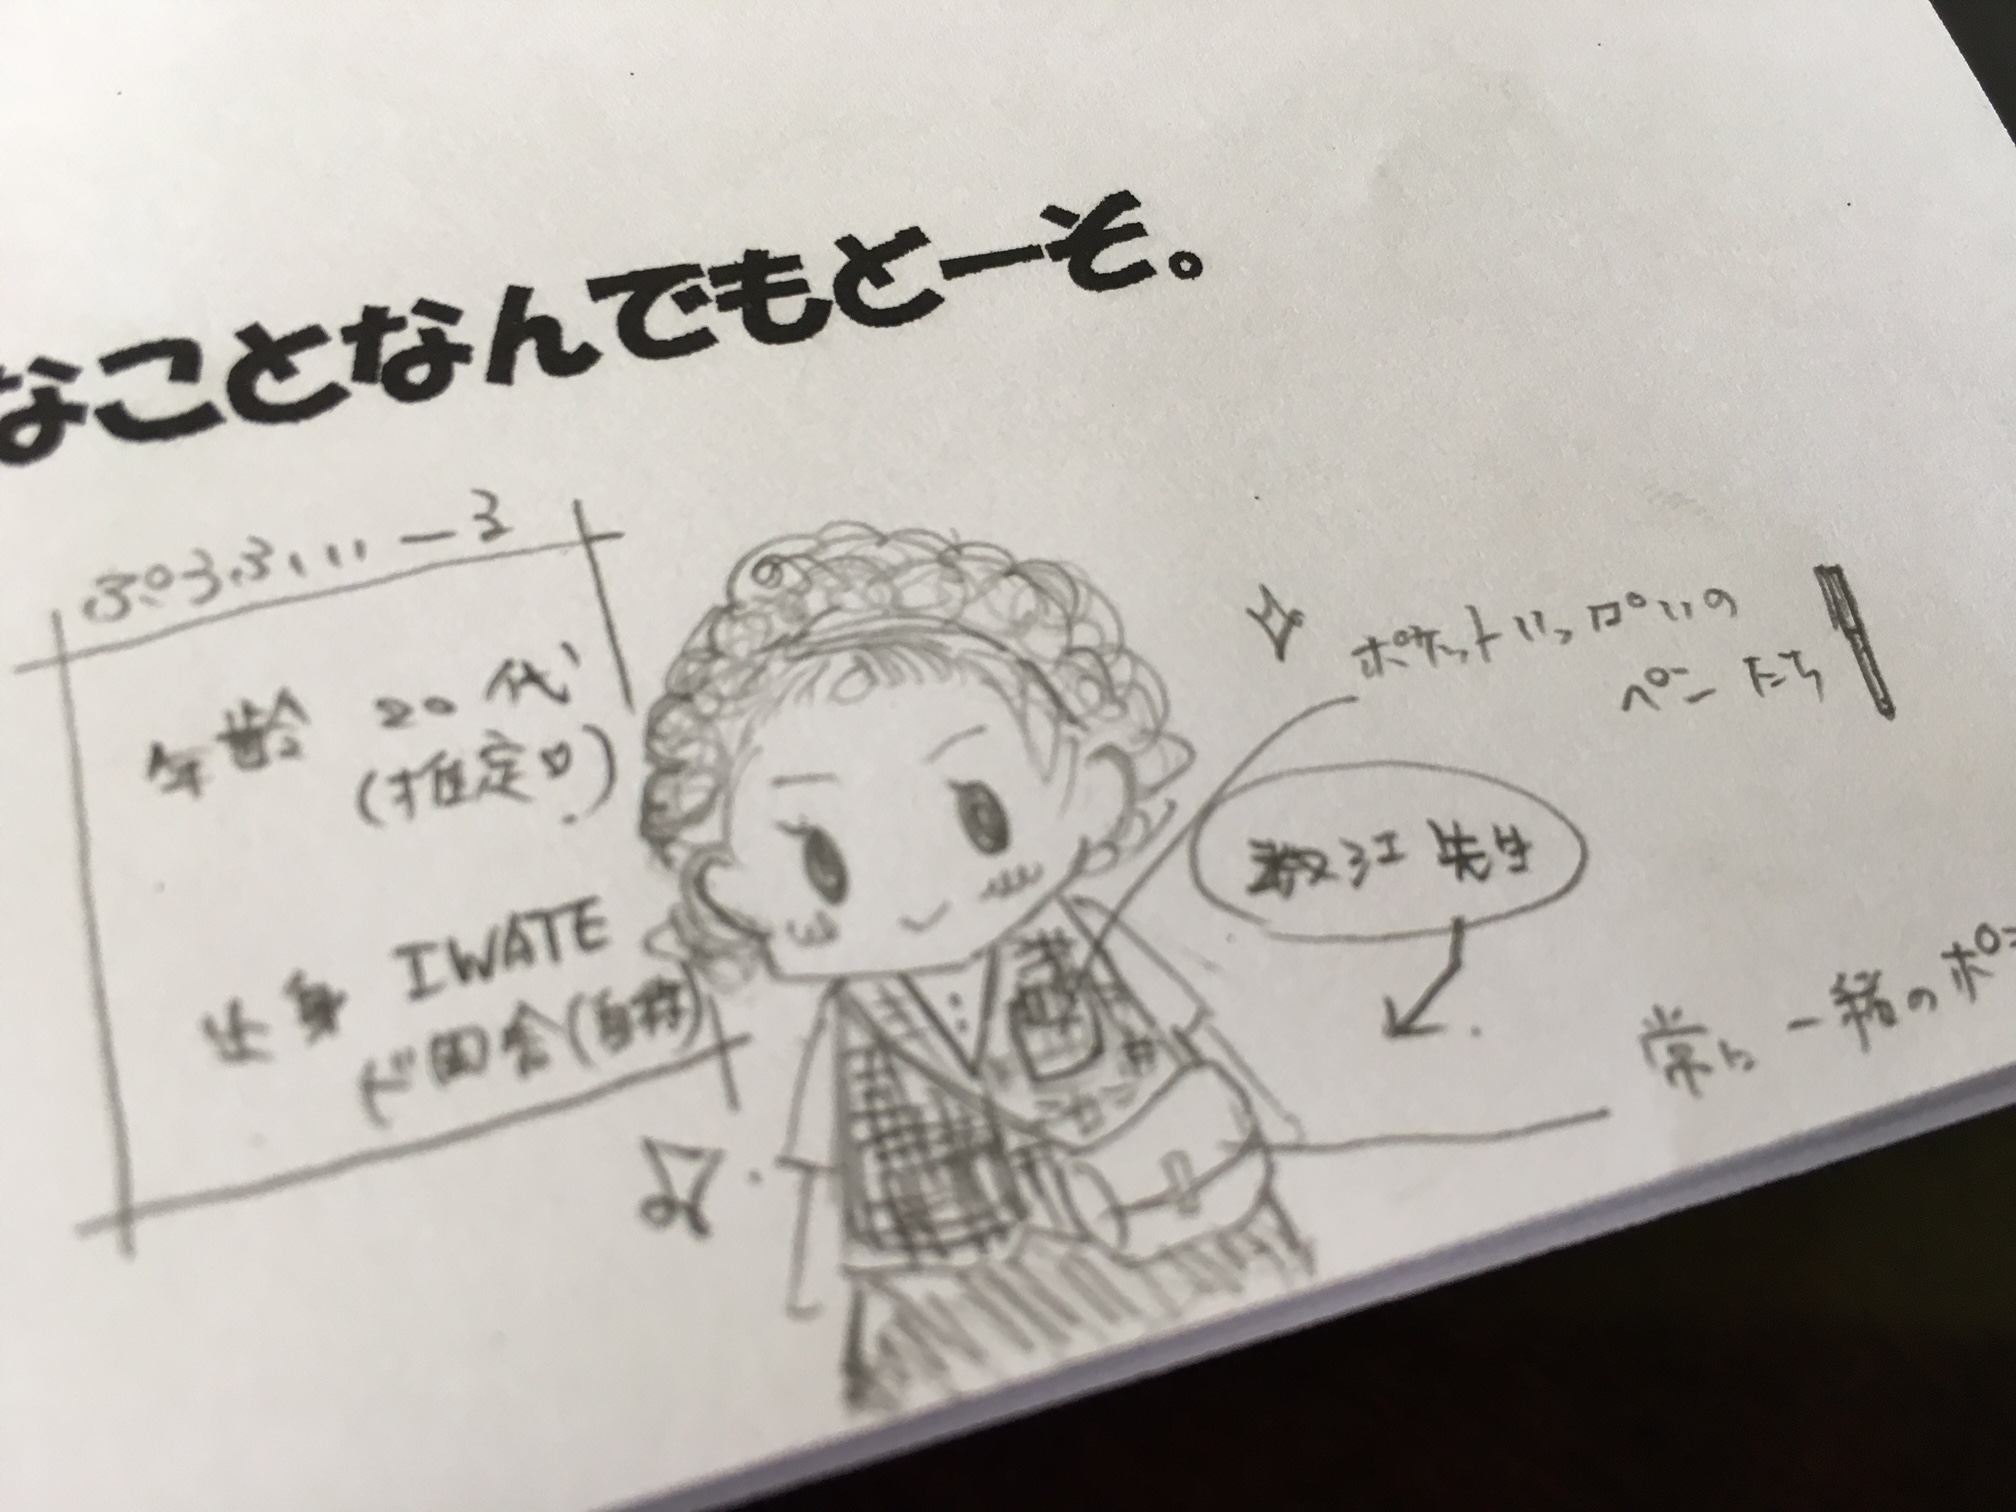 なことなんでもどーぞ。
ぷろふぃーる
年齢 20代
(推定♡)
出身 IWATE
ド田舎(自称)
ポケットいっぱいの
ペンたち
先生
常に一緒のポ